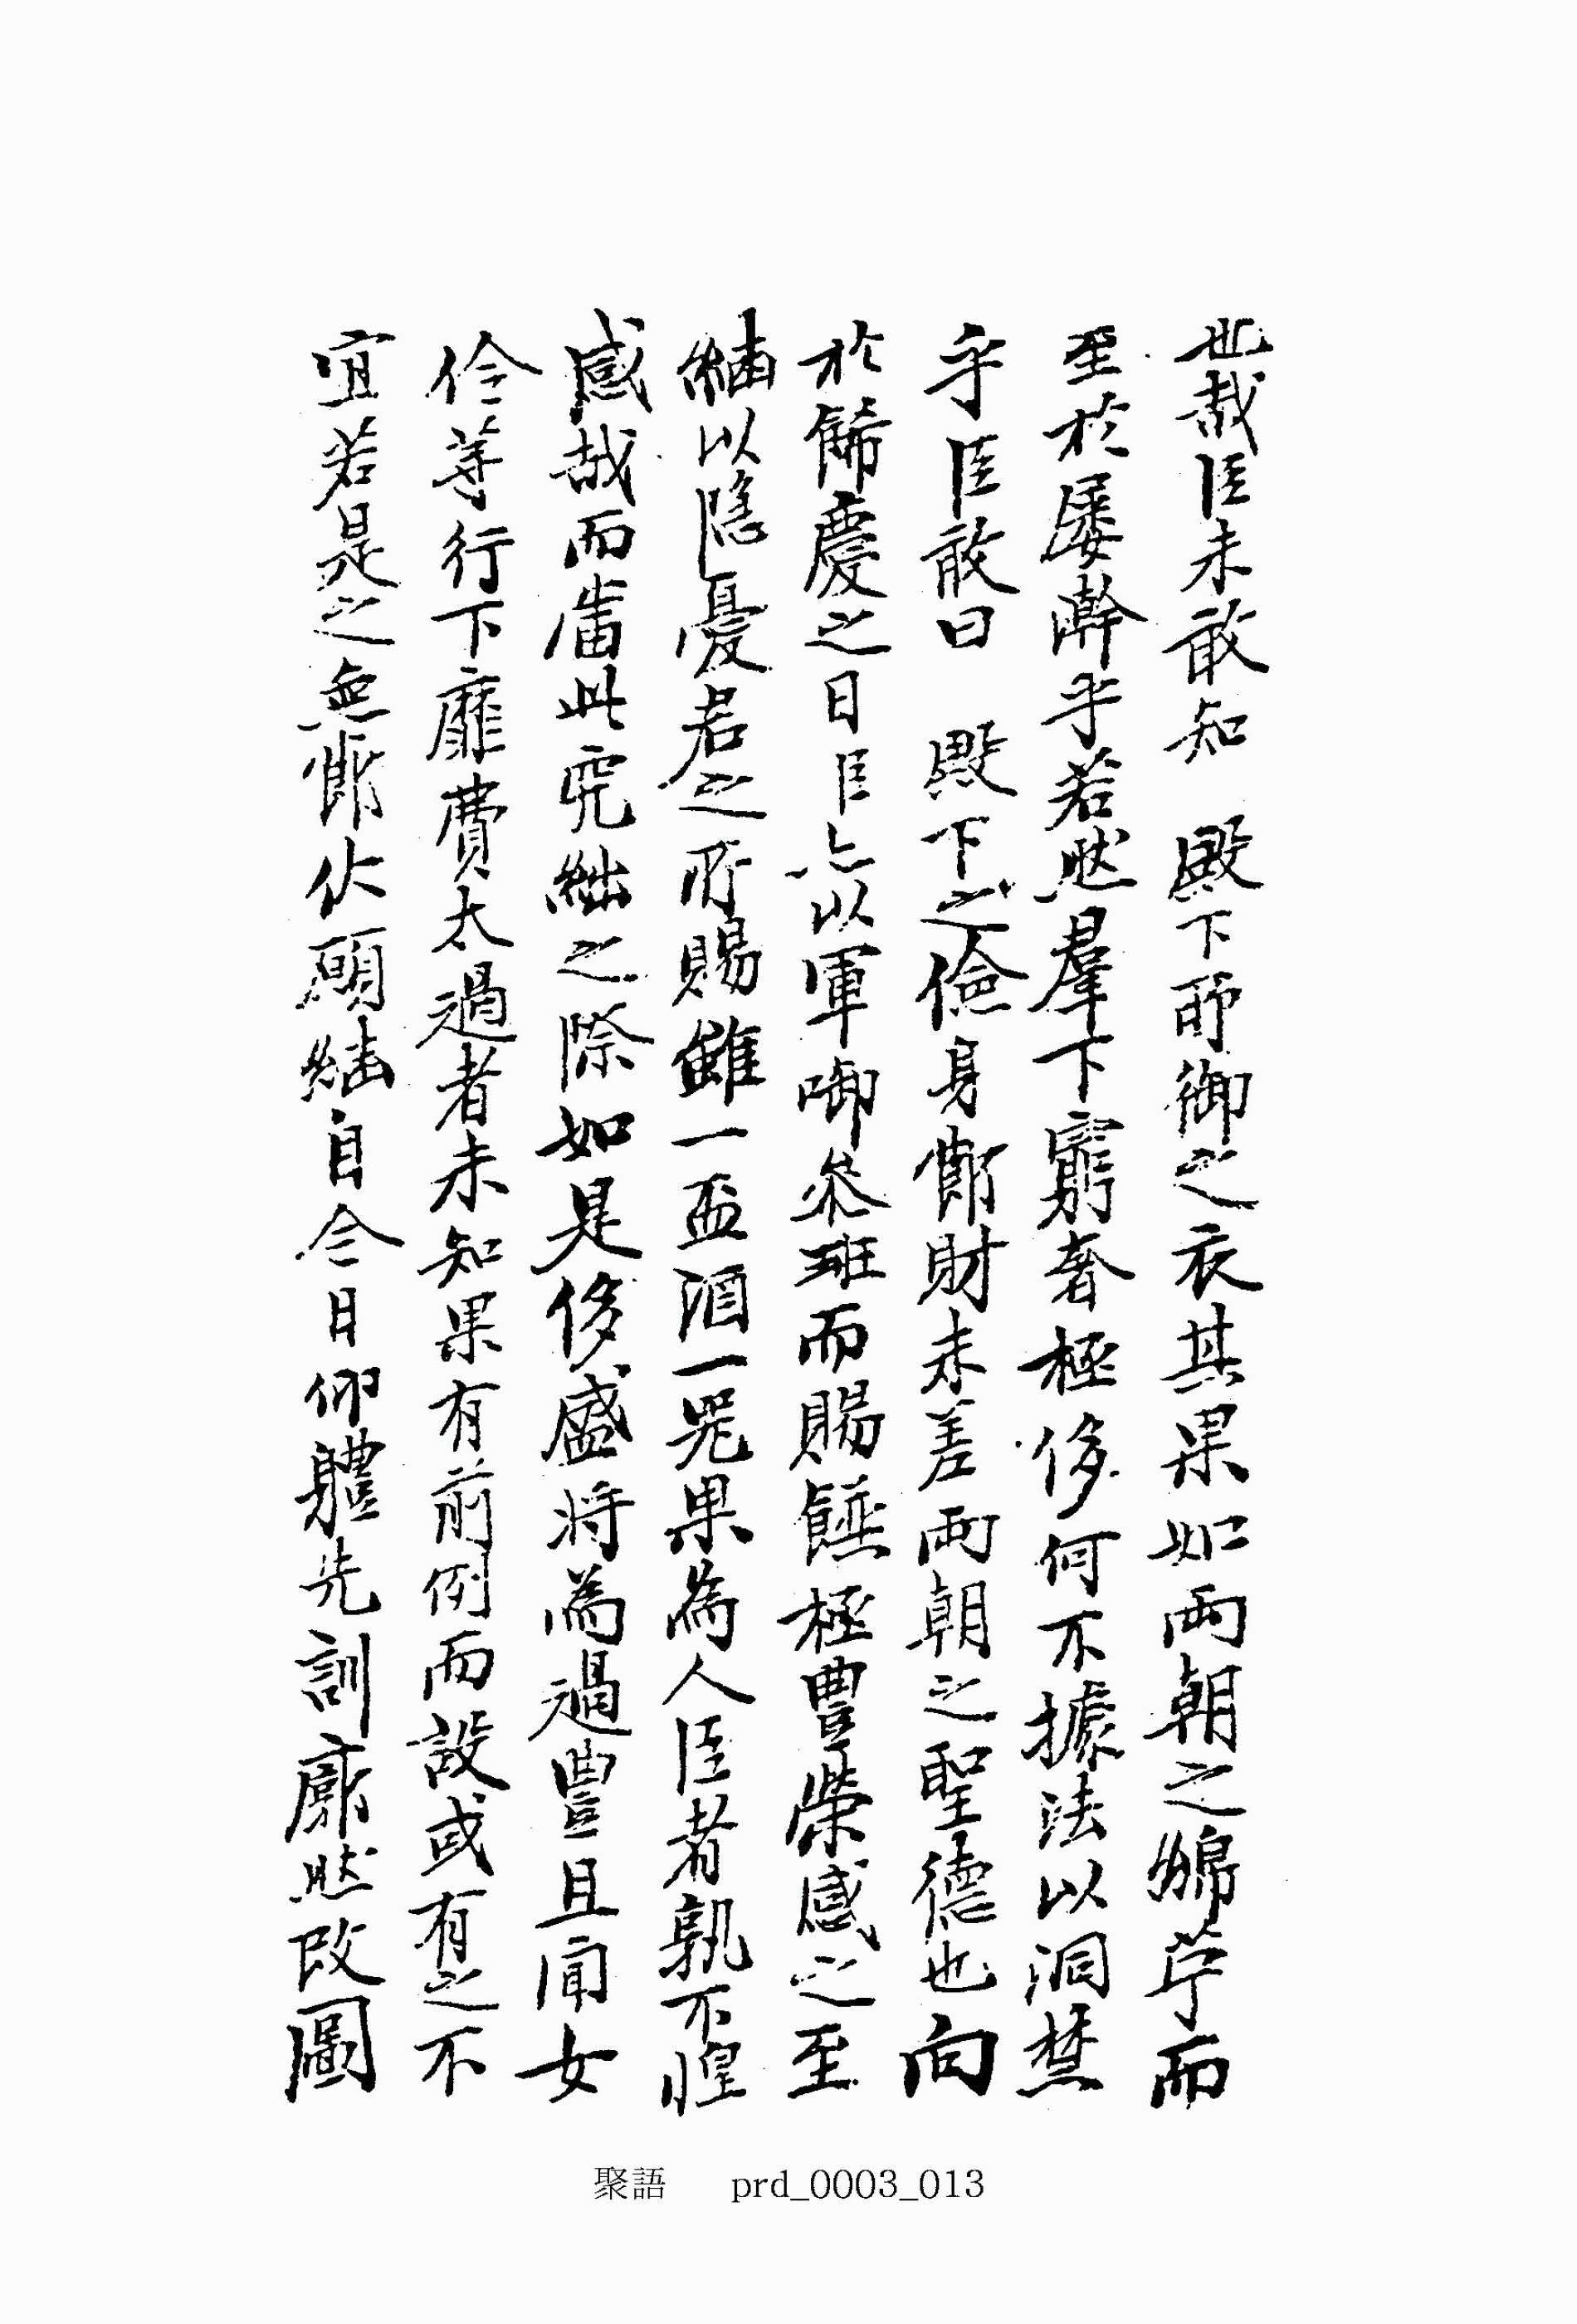 也哉臣未敢知　殿下所御之衣其果如兩朝之綿苧而
至於屡澣乎若然羣下窮奢極侈何不據法以洞禁
乎臣敢曰　殿下之儉身節財未差兩朝之聖德也向
於餙慶之日臣亦以軍啣叅班而賜饌極豊榮感之至
繼以隐憂君之所賜雖一盃酒一器果為人臣者孰不惶
感哉而當此究絀之際如是侈盛將為過豊且聞女
伶等行下靡費太過者未知果有前例而設或有之不
宜若是之無節伏願繼自今日仰軆先訓廓然改圖
聚語　prd_0003_013